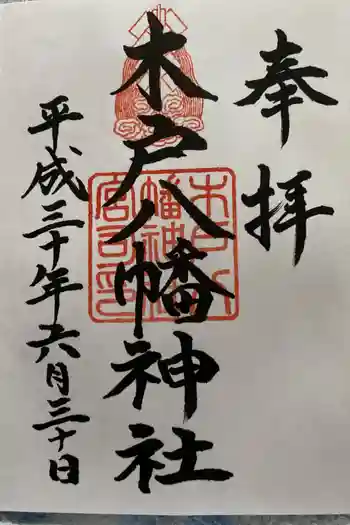 奉拝
木戸八幡神社
平成三十年六月三十日